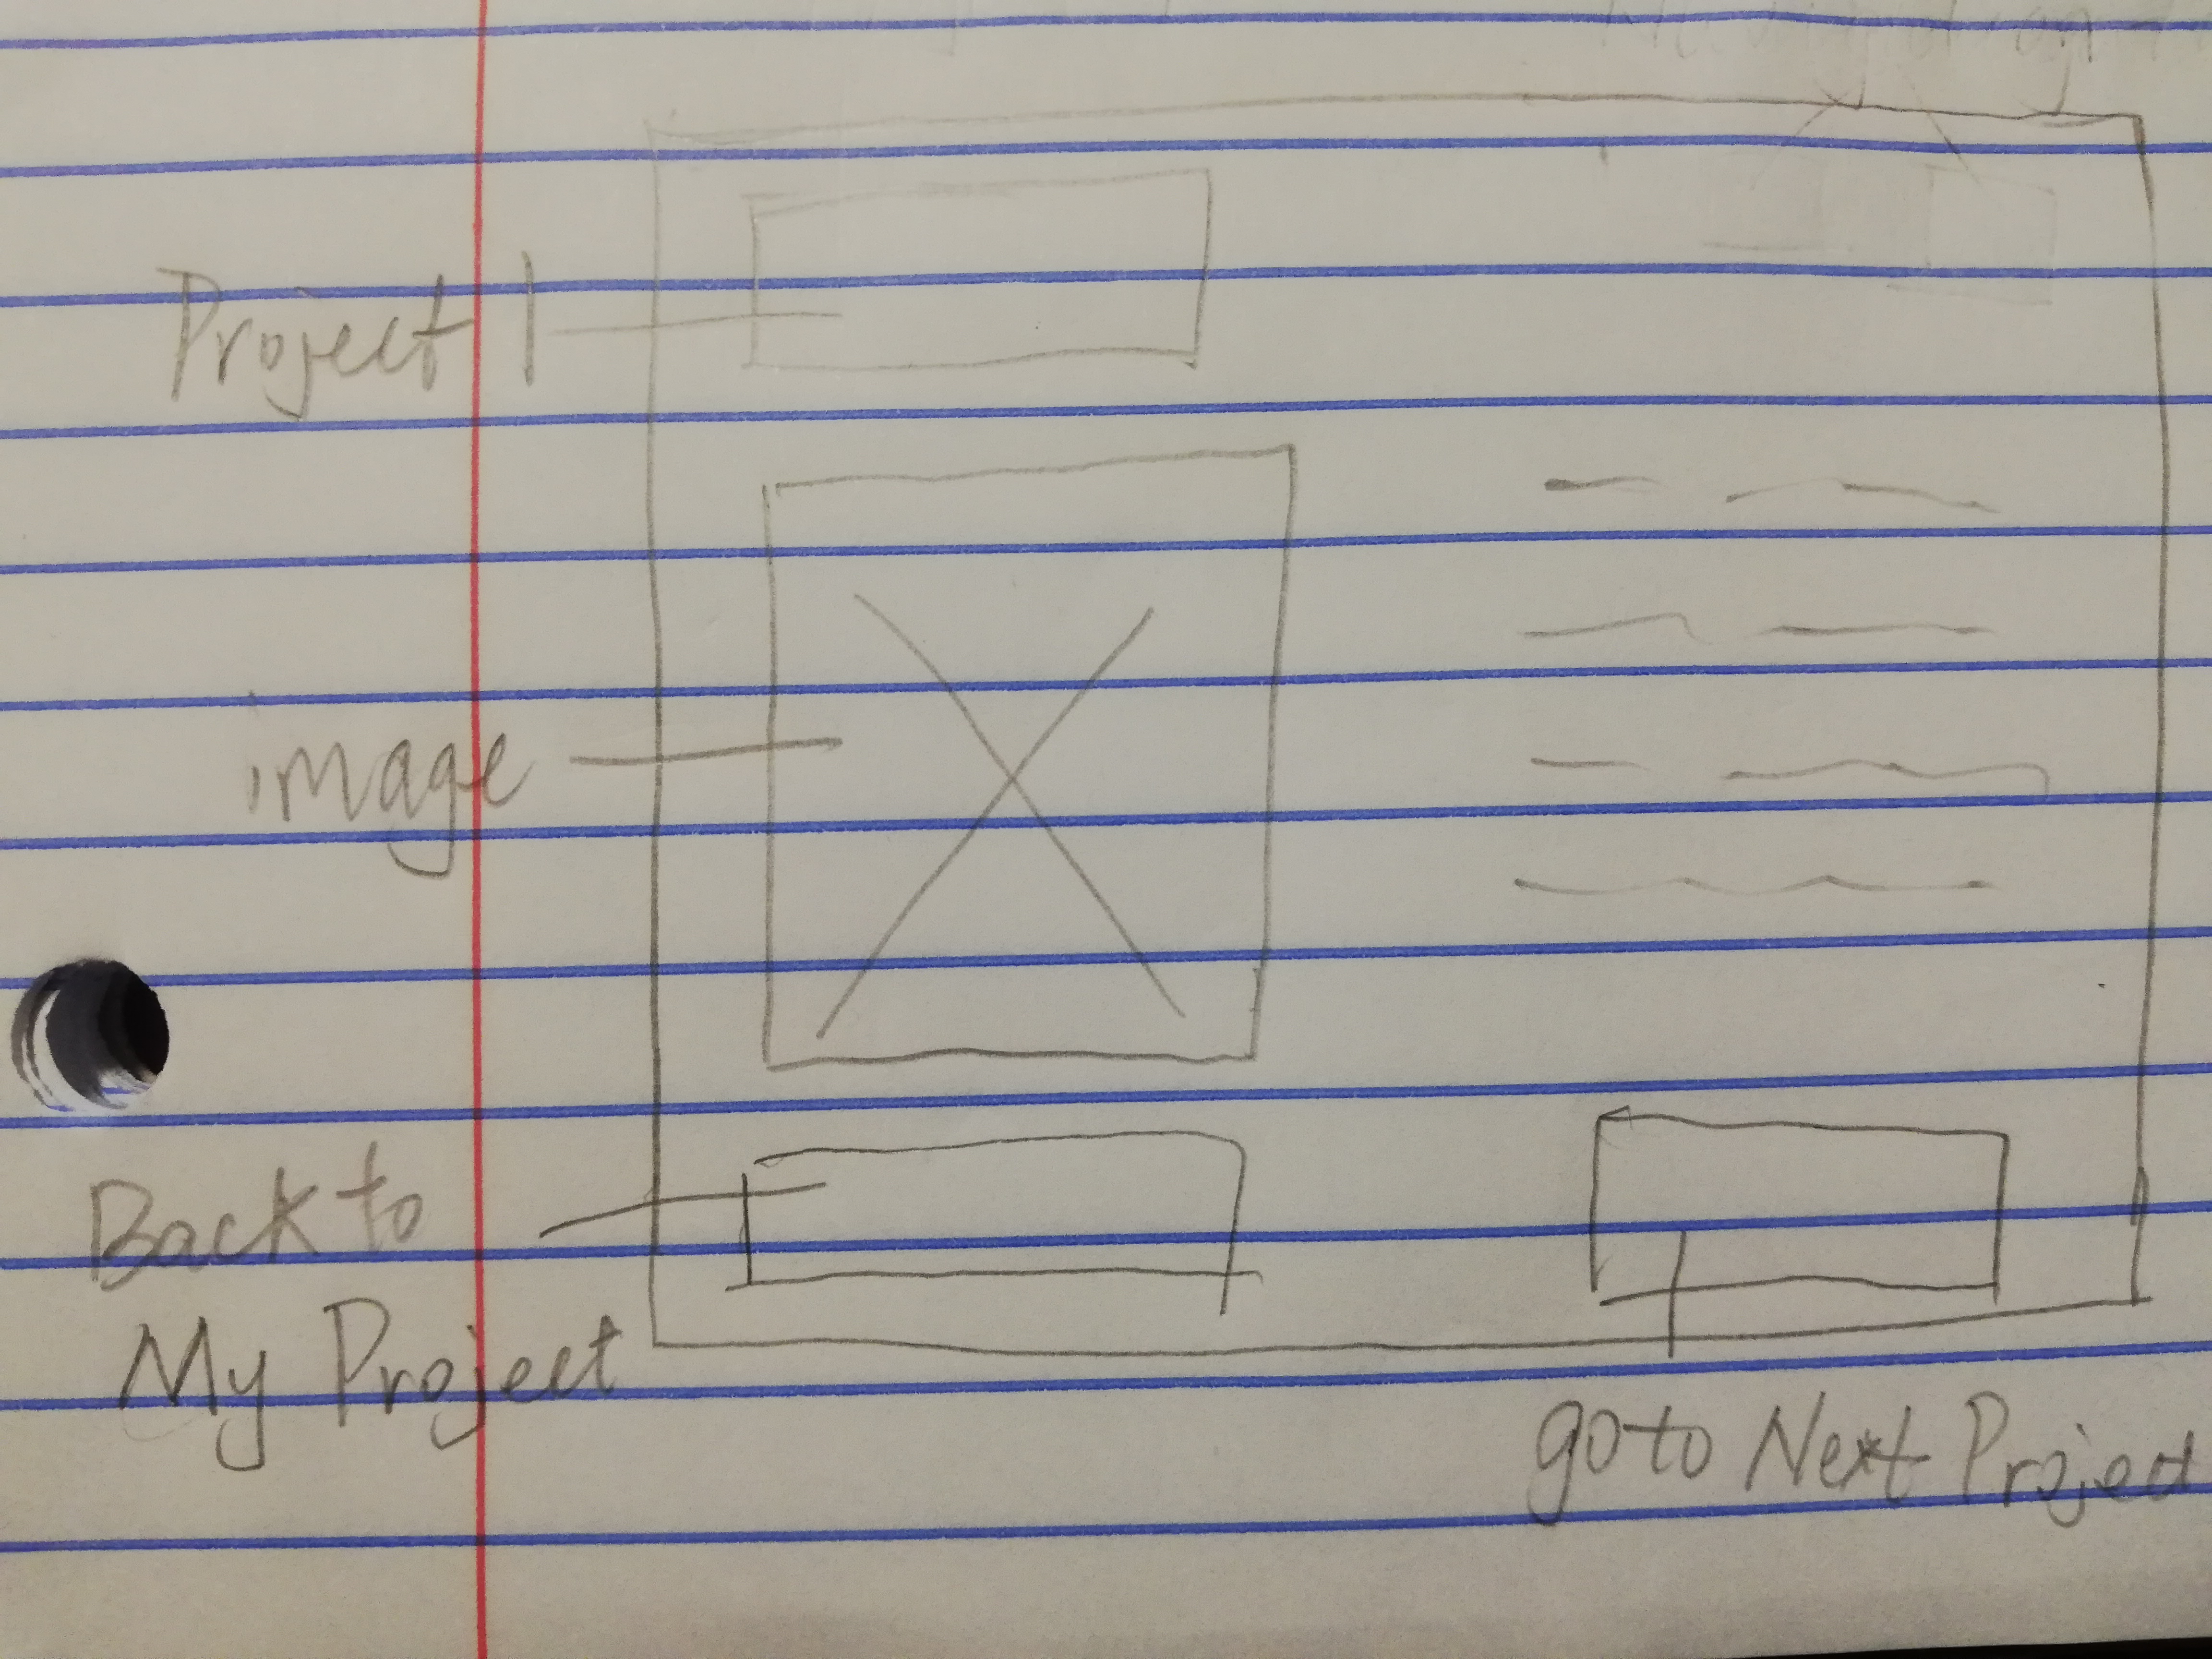 Project 1
image
Back to
My Project
go to Next Project